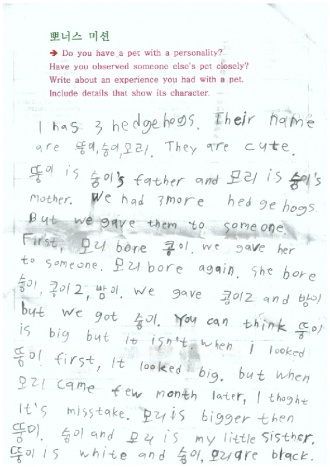 뽀너스 미션
→ Do you have a pet with a personality?
Have you observed someone else's pet closely?
Write about an experience you had with a pet.
Include details that show its character.
I has 3 hedgehogs. Their name
are 뚱이, 숭이, 모리. They are cute.
뚱이 is 숭이's father and 모리 is 숭이's
mother. We had 3more hedgehogs.
But we gave them to someone.
First, 모리 bore 콩이. we gave her
to someone. 모리 bore again. she bore
숭이, 콩이2, 밤이. we gave 콩이2 and 밤이
but we got 숭이. You can think 뚱이
is big but it isn't. when I looked
뚱이 first, It looked big. but when
모리 came few month later, I thoght
It's misstake. 모리 is bigger then
뚱이. 숭이 and 모리 is my little sisther.
뚱이 is white and 숭이, 모리 are black.